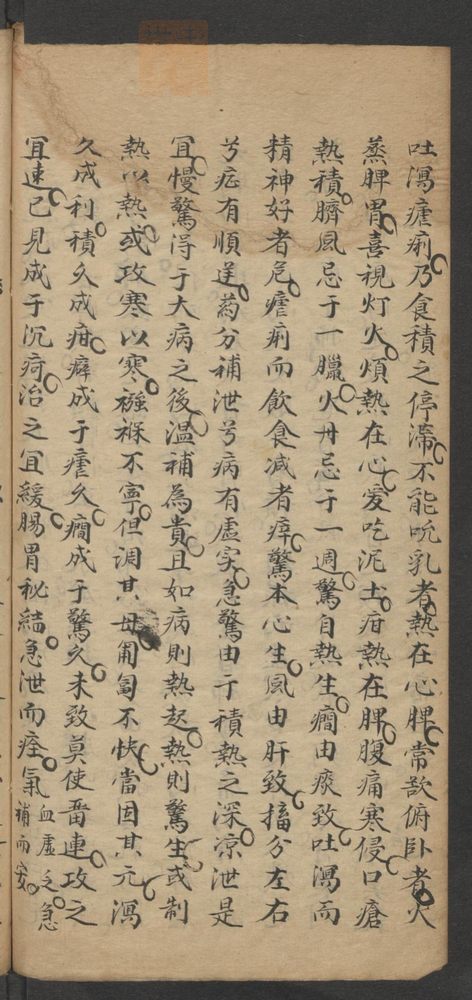 吐瀉瘧痢乃食積之停滯不能吮乳者熱在心脾常歆俯卧者火
蒸脾胃喜視灯火煩熱在心愛吃泥土疳熱在脾腹痛寒侵口瘡
熱積臍風忌于一臘火丹忌于一週驚自熱生癇由痰致吐瀉而
精神好者危瘧痢而飲食減者瘁驚本心生風由肝致搐分左右
兮症有順逆药分補泄兮病有虛实急驚由于積熱之深凉泄是
宜慢驚得于大病之後温補為貴且如病則熱起熱則驚生或制
熱以熱或攻寒以寒襁褓不寧但調其母匍匐不快當因其元瀉
久成利積久成疳癖成于瘧久癇成于驚久未致莫使畨連攻之
宜速已見成于沉疴治之宜緩腸胃秘結急泄而痊氣血虛乏急
補而安